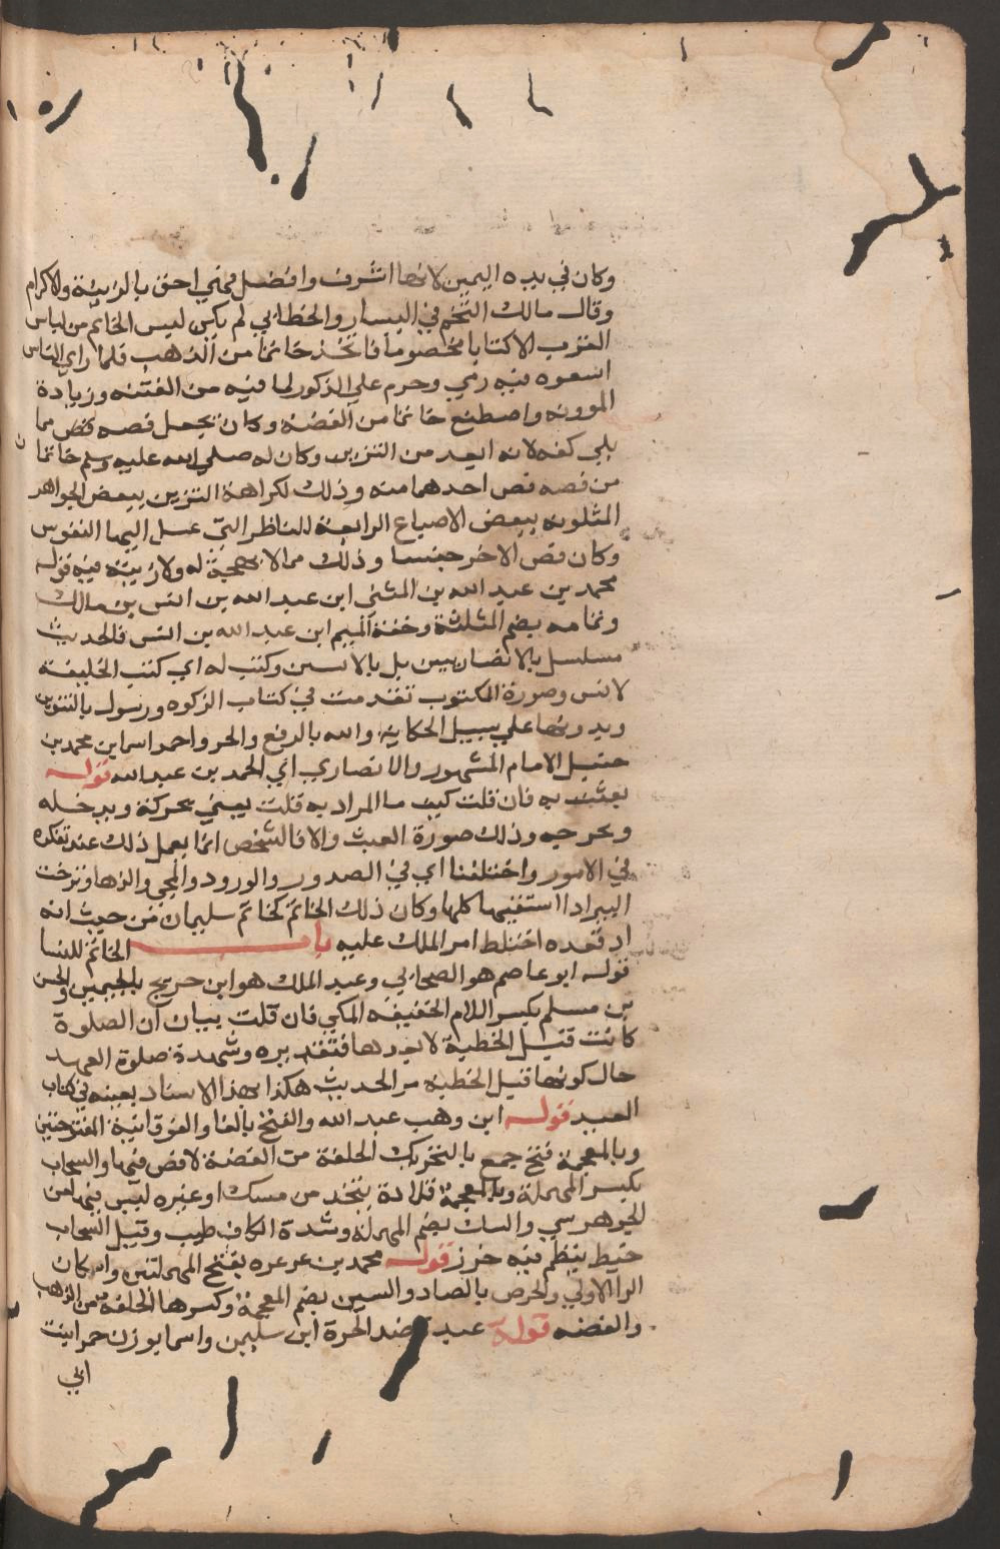 وكان في يده اليمين لانها اشرف وافضل فهي احق بالزينة والاكرام
وقال مالك التختم في اليسار والخطابي لم يكن لبس الخاتم من لباس
العرب الا كتابا مخصوما فاتخذ خاتما من الذهب فلما راي الناس
اتبعوه فيه رمي وحرم علي الذكور لما فيه من الفتنه وزيادة
الموونه واصطنع خاتما من الفضة وكان يجعل فصه مما
يلي كفه لانه ابعد من التزين وكان له صلي الله عليه وسلم خاتما
من فضه فص احدهما منه وذلك لكراهة التزين ببعض الجواهر
المتلونه ببعض الاصباغ الرايعة للناظر التي تميل اليها النفوس
وكان فص الاخر حبشيا وذلك مما لا بهجة له ولا زينة فيه قوله
محمد بن عبد الله بن المثني ابن عبد الله بن انس بن مالك
وثمامه بضم المثلثة وخفة الميم ابن عبد الله بن انس فالحديث
مسلسل بالانصاريين بل بالانسين وكتب له اي كتب الخليفه
لانس وصورة المكتوب تقدمت في كتاب الزكوه ورسول بالتنوين
وبدونها علي سبيل الحكاية والله بالرفع والجر واحمد اي ابن محمد بن
حنبل الامام المشهور والانصاري اي محمد بن عبد الله قوله
يعبث به فان قلت كيف ما المراد به قلت يعني يحركة ويدخله
ويخرجه وذلك صورة العبث والا فالشخص انما يعمل ذلك عند تفكره
في الامور واختلفنا اي في الصدور والورود والمجي والذهاب ونزحت
البير اذا استقيتها كلها وكان ذلك الخاتم كخاتم سليمان من حيث انه
اذ فقده اختلط امر الملك عليه باب الخاتم للنسا
قوله ابو عاصم هو الضحاك وعبد الملك هو ابن جريج بالجيمين والحسن
بن مسلم بكسر اللام الخفيفه المكي فان قلت بيان ان الصلوة
كانت قبل الخطبة لا بدونها فتقديره وشهدت صلوة العيد
حال كونها قبل الخطبه مر الحديث هكذا بهذا الاسناد بعينه في كتاب
العيد قوله ابن وهب عبد الله والفتخ بالفا والفوقانية المفتوحتين
وبالمعجمة فتخ جمع بالتحريك الحلقة من الفضة لا فص فيها والسخاب
بكسر المهملة وبالمعجمة قلادة يتخذ من مسك او غيره ليس فيها من
الجوهر شي والسك بضم المهمله وشدة الكاف طيب وقيل السخاب
خيط ينظم فيه خرز قوله محمد بن عرعره بفتح المهملتين واسكان
الرا الاولي والخرص بالصاد والسين بضم المعجمة وكسرها الحلقه من الذهب
والفضه قوله عبدة ضد الحرة ابن سليمن واسما بوزن حمرا بنت
ابي